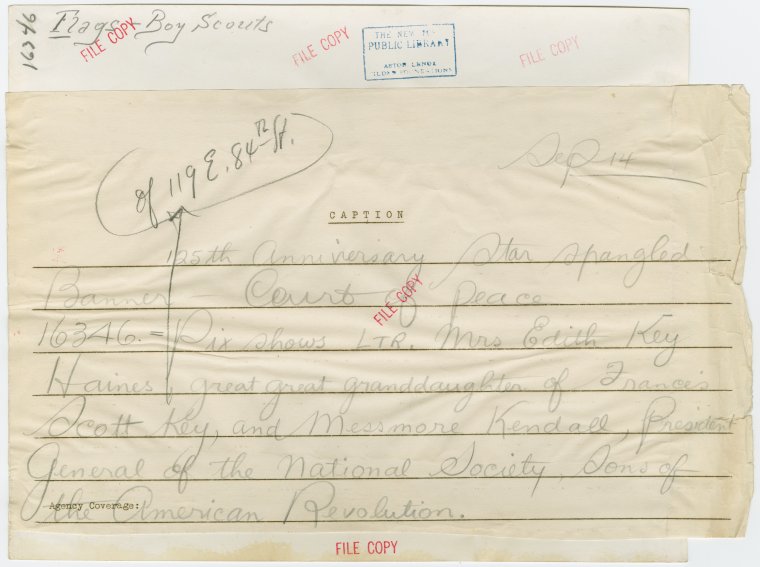 16346
Flags Boy Scouts
FILE COPY
FILE COPY
FILE COPY
THE NEW YORK
PUBLIC LIBRARY
ASTOR LENOX
TILDEN FOUNDATIONS
of 119 E. 84th St.
Sep 14
CAPTION
125th Anniversary Star Spangled
Banner - Court of Peace
FILE COPY
16346. = Pix shows LTR. Mrs Edith Key
Haines, great great granddaughter of Frances
Scott Key, and Messmore Kendall, President
General of the National Society, Sons of
Agency Coverage:
the American Revolution.
FILE COPY